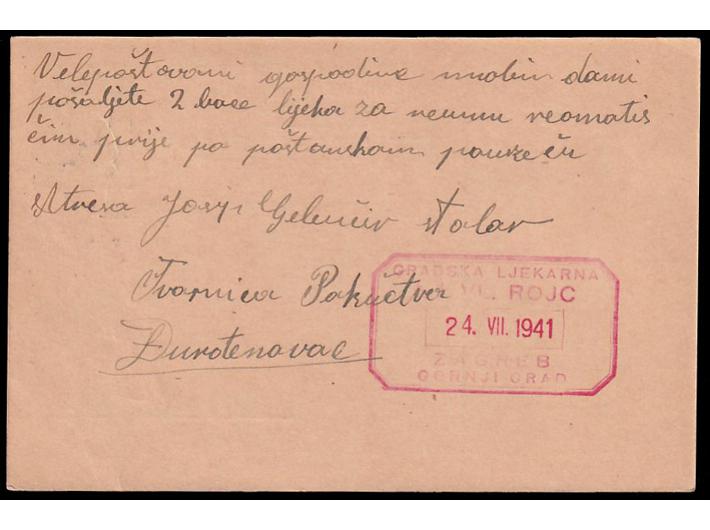 Velepoštovani gospodine molim dami
pošaljete 2 boce lijeka za reumu reomatis
čim prije po poštanskom pouzeću
Atresa Josip stolar
Tvornica Pokućtva
Đurđenovac
GRADSKA LJEKARNA
VL. ROJC
24. VII. 1941
ZAGREB
GORNJI GRAD